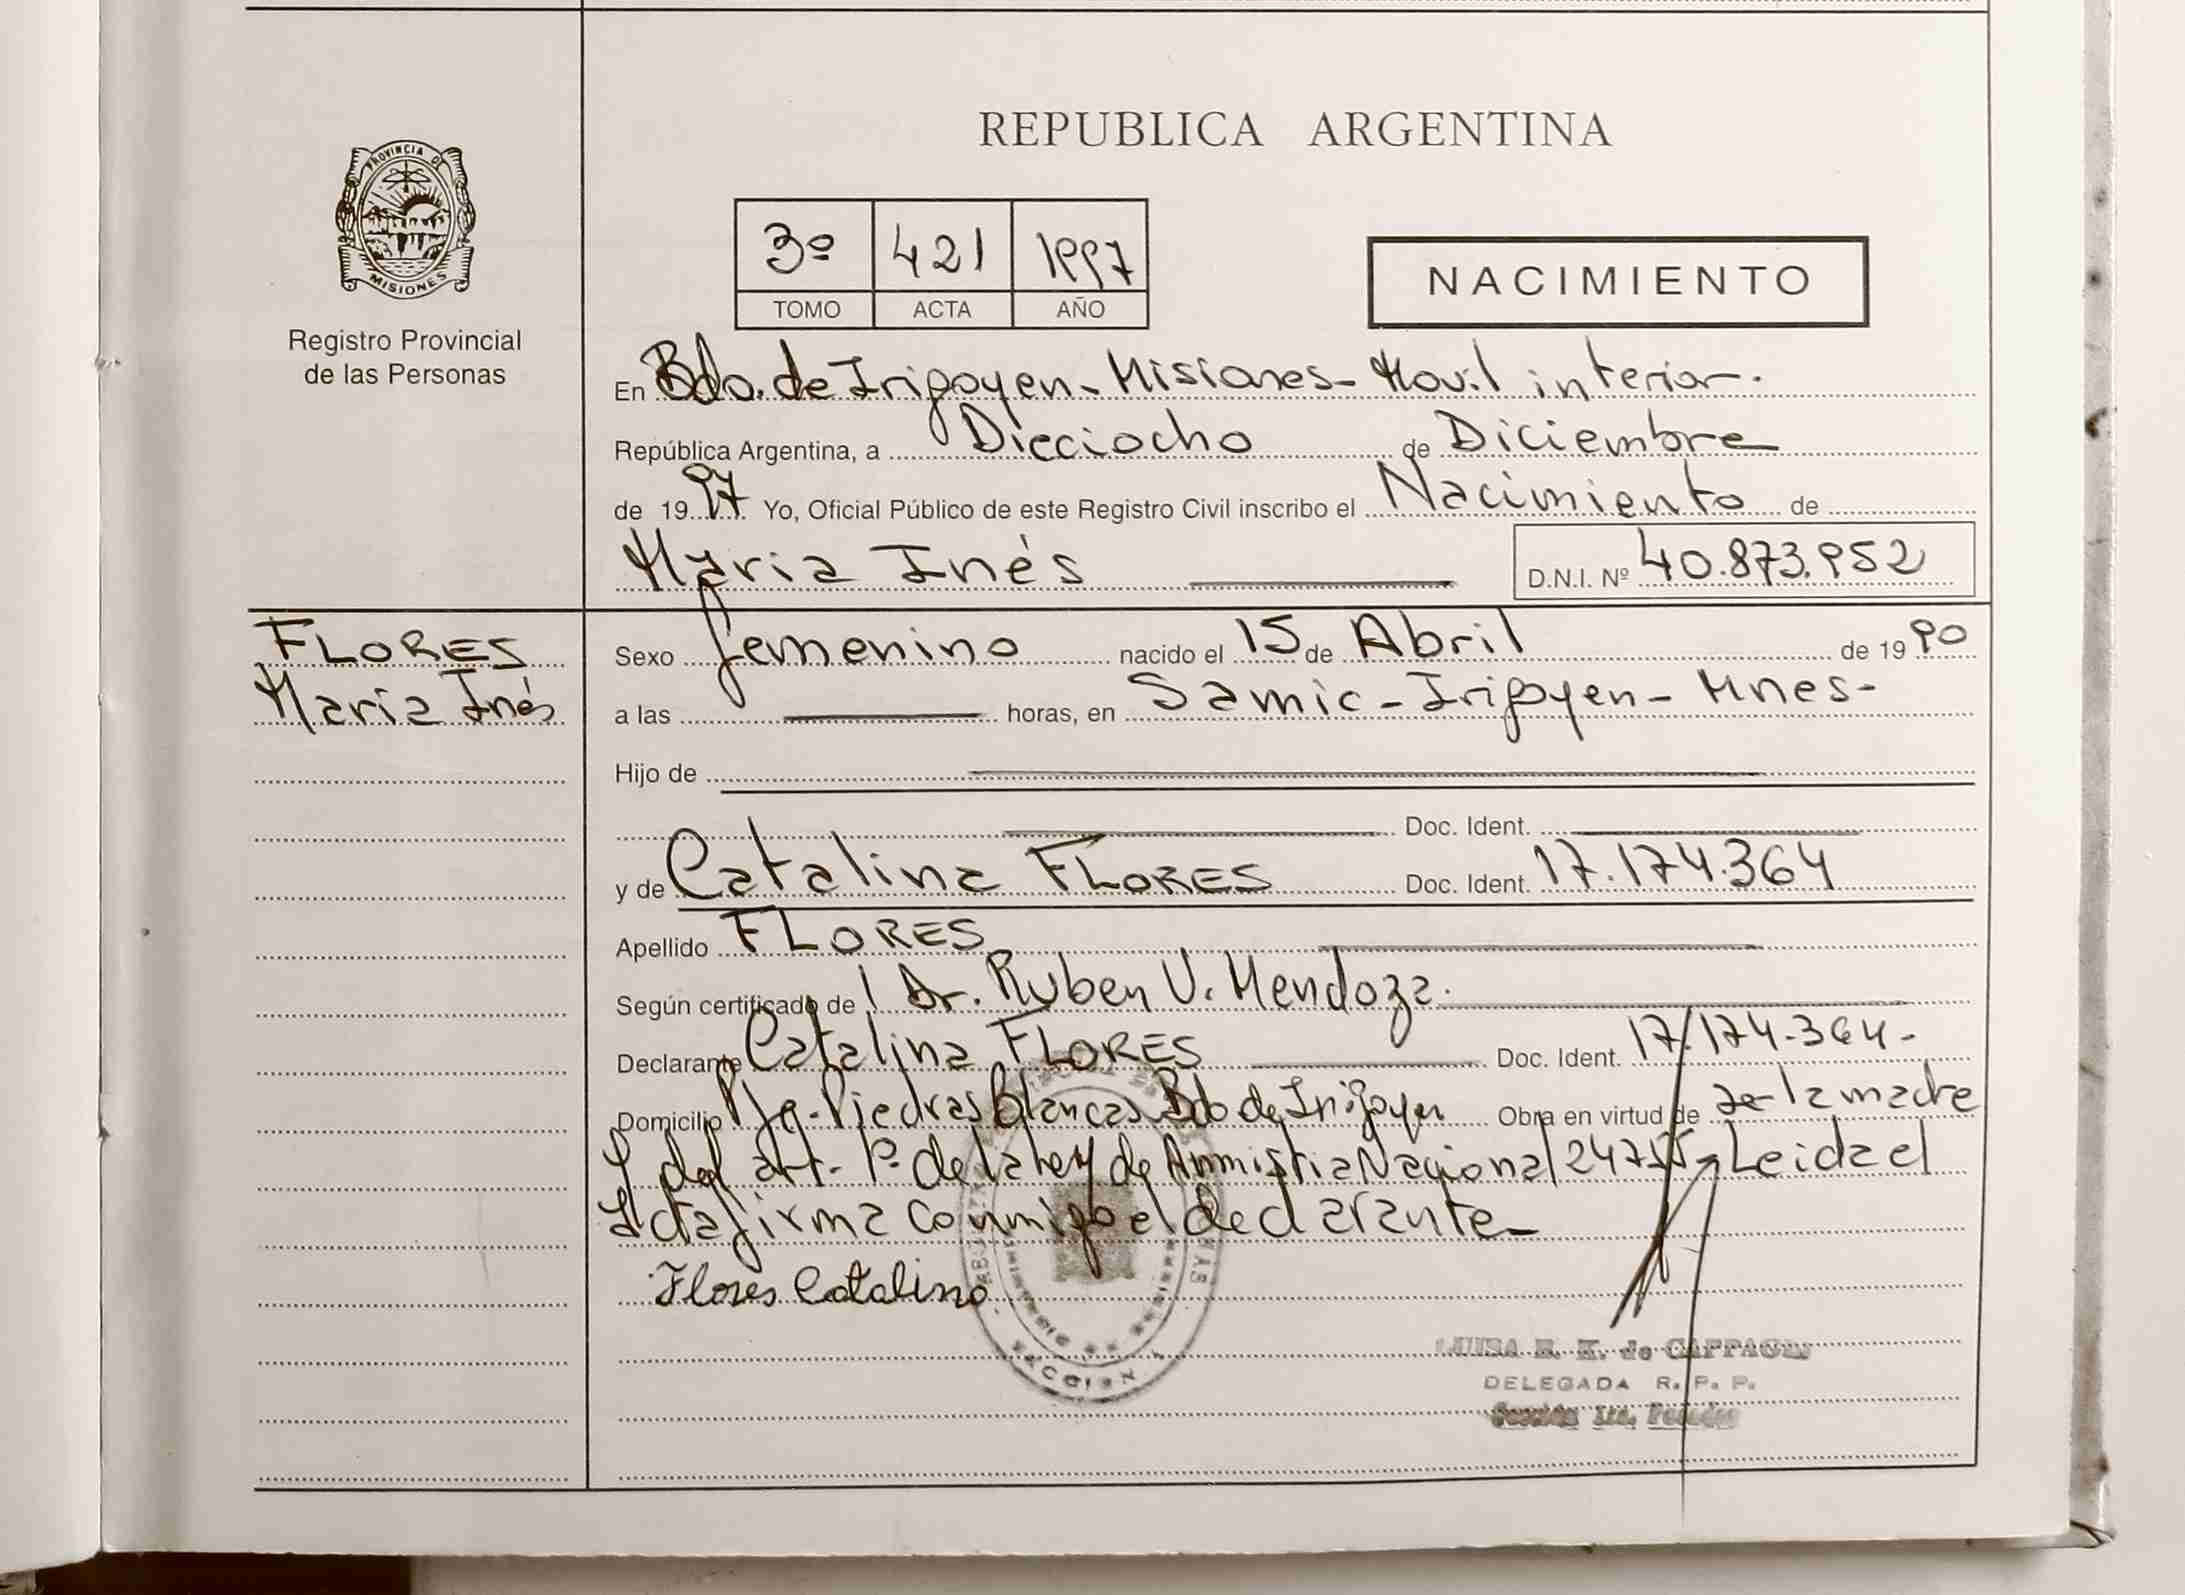 REPUBLICA ARGENTINA
PROVINCIA DE
MISIONES
Registro Provincial
de las Personas
3º 421 1997
TOMO ACTA AÑO
NACIMIENTO
En Bdo. de Irigoyen - Misiones - Movil interior.
República Argentina, a Dieciocho de Diciembre
de 1997 Yo, Oficial Público de este Registro Civil inscribo el Nacimiento de
Maria Inés D.N.I. Nº 40.873.952
FLORES
Maria Inés
Sexo femenino nacido el 15 de Abril de 1990
a las horas, en Samic - Irigoyen - Mnes -
Hijo de
Doc. Ident.
y de Catalina FLORES Doc. Ident. 17.174.364
Apellido FLORES
Según certificado de Dr. Ruben V. Mendoza.
Declarante Catalina FLORES Doc. Ident. 17.174.364 -
Domicilio Pje. Piedras Blancas Bdo de Irigoyen Obra en virtud de de la madre
y del art. 1º de la ley de Ammistia Nacional 24755 - Leida el
acta firma conmigo el declarante -
Flores Catalina
SECCION
LUISA E. K. de
DELEGADA R. P. P.